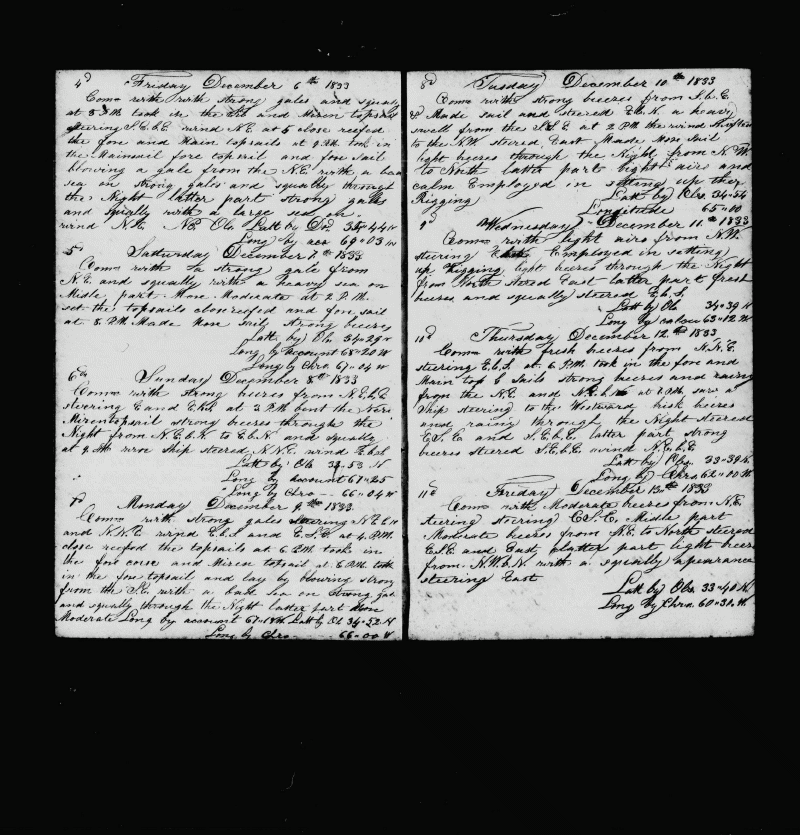 4d Friday December 6th 1833
Coms with with strong gales and squaly
at 3 P.M. took in the and Mizen topsail
steering S.E.b.E wind N.E. at 5 close reefed
the fore and Main topsails at 9 P.M. took in
the Mainsail fore topsail and fore sail
blowing a gale from the N.E. with a bad
sea on strong gales and squally through
the Night latter part strong gales
and squally with a large sea on.
wind N.E. Latt by 35"44 N
Long by acc 69"03 W
5d Saturday December 7th 1833
Coms with a strong gale from
N.E. and squally with a heavy sea on
Midle part More Moderate at 2 P.M.
set the topsails close reefed and fore sail
at 8 P.M. Made More sail strong breezes
Latt by Ob 34"29 N
Long by account 68"20 W
Long by Chro 67"04 W
6th Sunday December 8th 1833
Coms with strong breezes from N.E.b.E
steering E and E.b.S at 3 P.M. bent the New
Mizen topsail strong breezes through the
Night from N.E.b.N to E.b.N and squally
at 9 ship steered N.N.E. wind E.b.S
Latt by Ob 34"53 N
Long by account 67"25
Long by Chro 66"04 W
7d Monday December 9th 1833
Coms with strong gales steering N.E.b.N
and N.N.E. wind E.b.S and E.S.E. at 4 P.M.
close reefed the topsails at 6 P.M. took in
the fore corse and Mizen topsail at 8 P.M. took
in the fore topsail and lay by blowing strong
from the S.E. with a bad sea on strong gales
and squally through the Night latter part More
Moderate Long by account 67"18 W Latt by Ob 34"52 N
Long by Chro 66"00 W
8d Tusday December 10th 1833
Coms with strong breezes from S.b.E
Made sail and steered E.b.N. a heavy
swell from the S.b.E at 2 P.M. the wind
to the N.W. steered East Made More sail
light breezes through the Night from N.W.
to North latter part light airs and
calm Employed in setting up the
Rigging Latt by Obs 34"54
Longitude 65"00
9d Wednesday December 11th 1833
Coms with light airs from N.W.
steering East Employed in setting
up Rigging light breezes through the Night
from North stered East latter part fresh
breezes and squally steered E.b.S.
Latt by Ob 34"39 N
Long by 63"12 W
10d Thursday December 12th 1833
Coms with fresh breezes from N.N.E.
steering E.b.S. at 6 P.M. took in the fore and
Main top G sails strong breezes and rainy
from the N.E. and N.E.b.N at 7 P.M. saw a
Ship steering to the Westward brisk breezes
and rainy through the Night steered
E.S.E and S.E.b.E. latter part strong
breezes steered S.E.b.E. wind N.E.b.E
Latt by Obs 33"39 N
Long by Chro 62"00 W
11d Friday December 13th 1833
Coms with Moderate breezes from N.E.
steering steering E.S.E. Midle part
Moderate breezes from N.E. to North steered
E.S.E. and East latter part light breezes
from N.W.b.N. with a squally apearance
steering East
Latt by Obs 33"40 N
Long by Chro 60"32 W